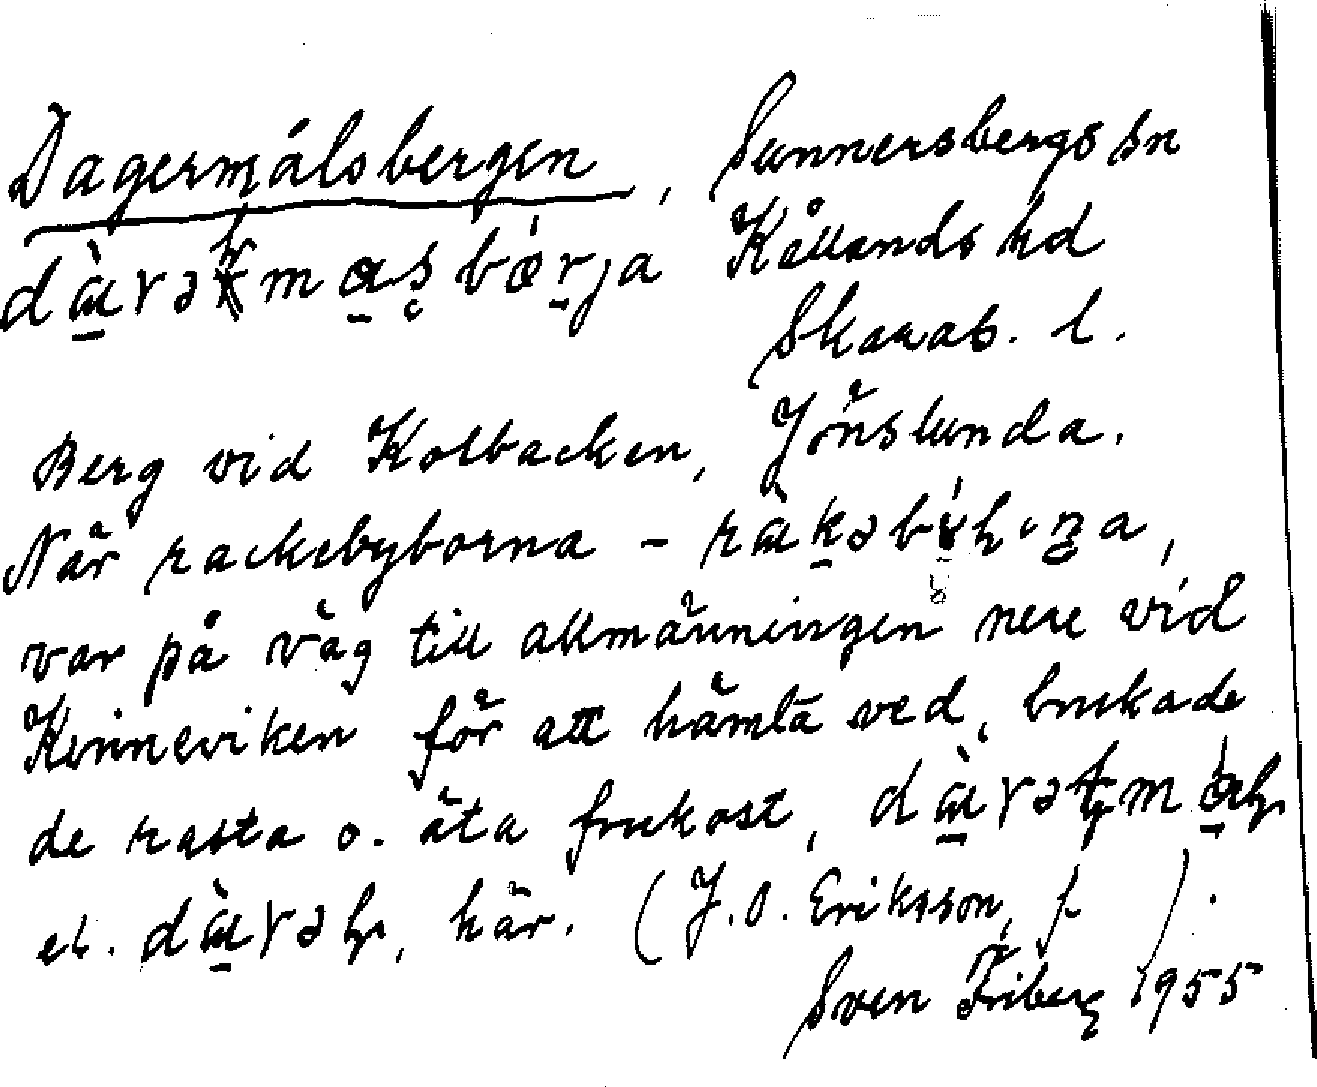 Dagermålsbergen, Sunnersbergs sn
Kållands hd
Skarab. l.
Berg vid Kolbacken, Jönslunda.
När rackebyborna -
var på väg till allmänningen nere vid
Kinneviken för att hämta ved, brukade
de rasta o. äta frukost,
el. här. (J.O. Eriksson, f ).
Sven Friberg 1955